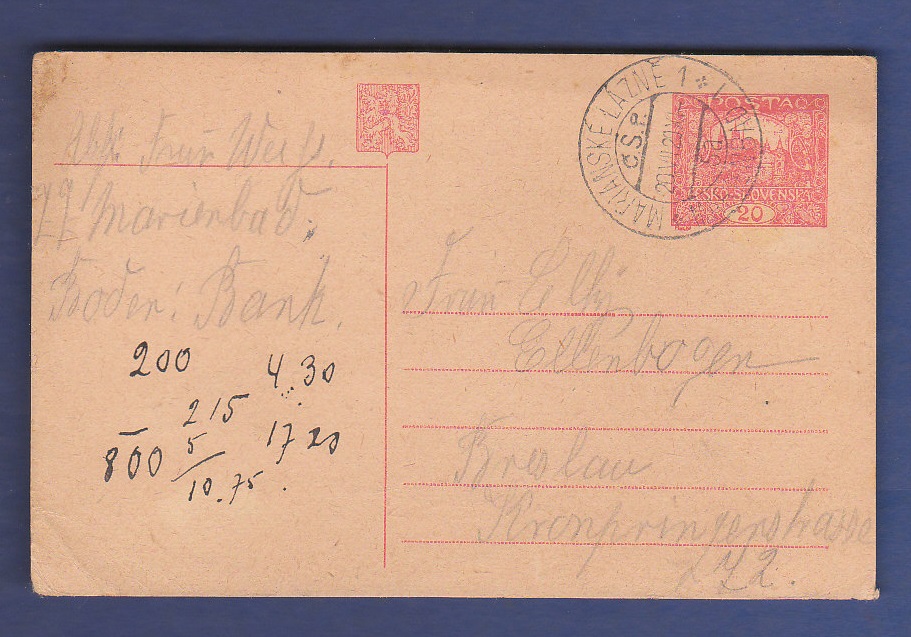 Abs. Frau Weiss.
Marienbad.
Boden: Bank.
200 4.30
215
800 5 17 20
10.75.
MARIÁNSKÉ LÁZNĚ 1
Č.S.P.
POŠTA
ČESKO-SLOVENSKÁ
20
Frau Elly
Ellenbogen
Breslau
Kronprinzenstrasse